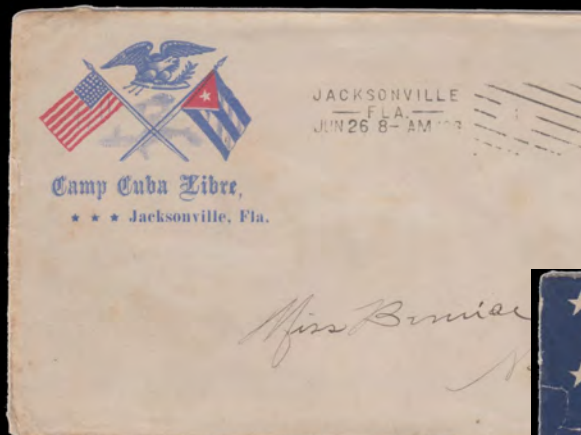 JACKSONVILLE
FLA.
JUN 26 8- AM
Camp Cuba Libre,
★ ★ ★ Jacksonville, Fla.
Miss